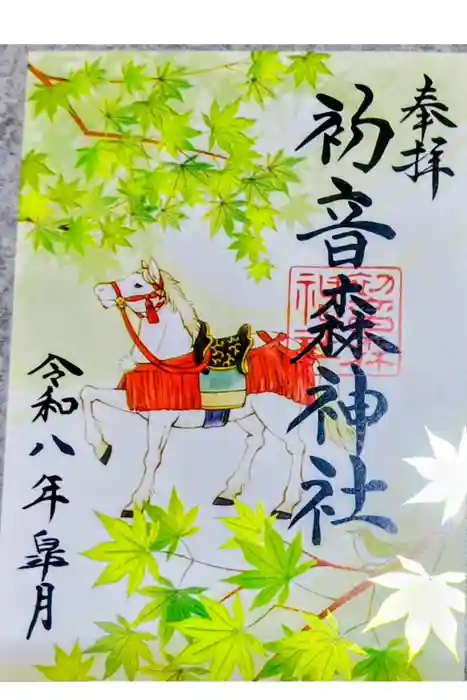 奉拝
初音森神社
令和八年皐月